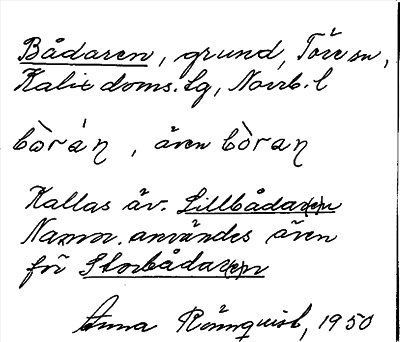 Bådaren, grund, Töre sn,
Kalix doms.lg, Norrb. l
bò̀rán, även bòran
Kallas äv. Lillbådar(e)n
Namnet användes även
för Storbådar(e)n
Anna Rönnquist, 1950